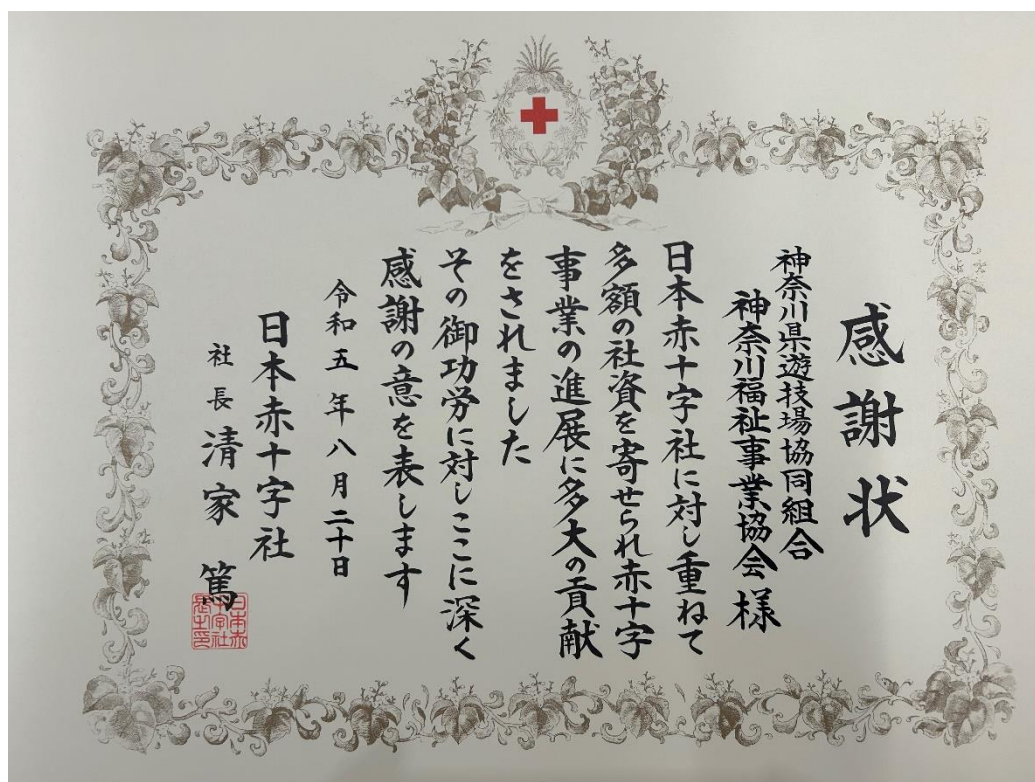 感謝状
神奈川県遊技場協同組合
神奈川福祉事業協会様
日本赤十字社に対し重ねて
多額の社資を寄せられ赤十字
事業の進展に多大の貢献
をされました
その御功労に対しここに深く
感謝の意を表します
令和五年八月二十日
日本赤十字社
社長 清家 篤
日本赤
十字社
長之印